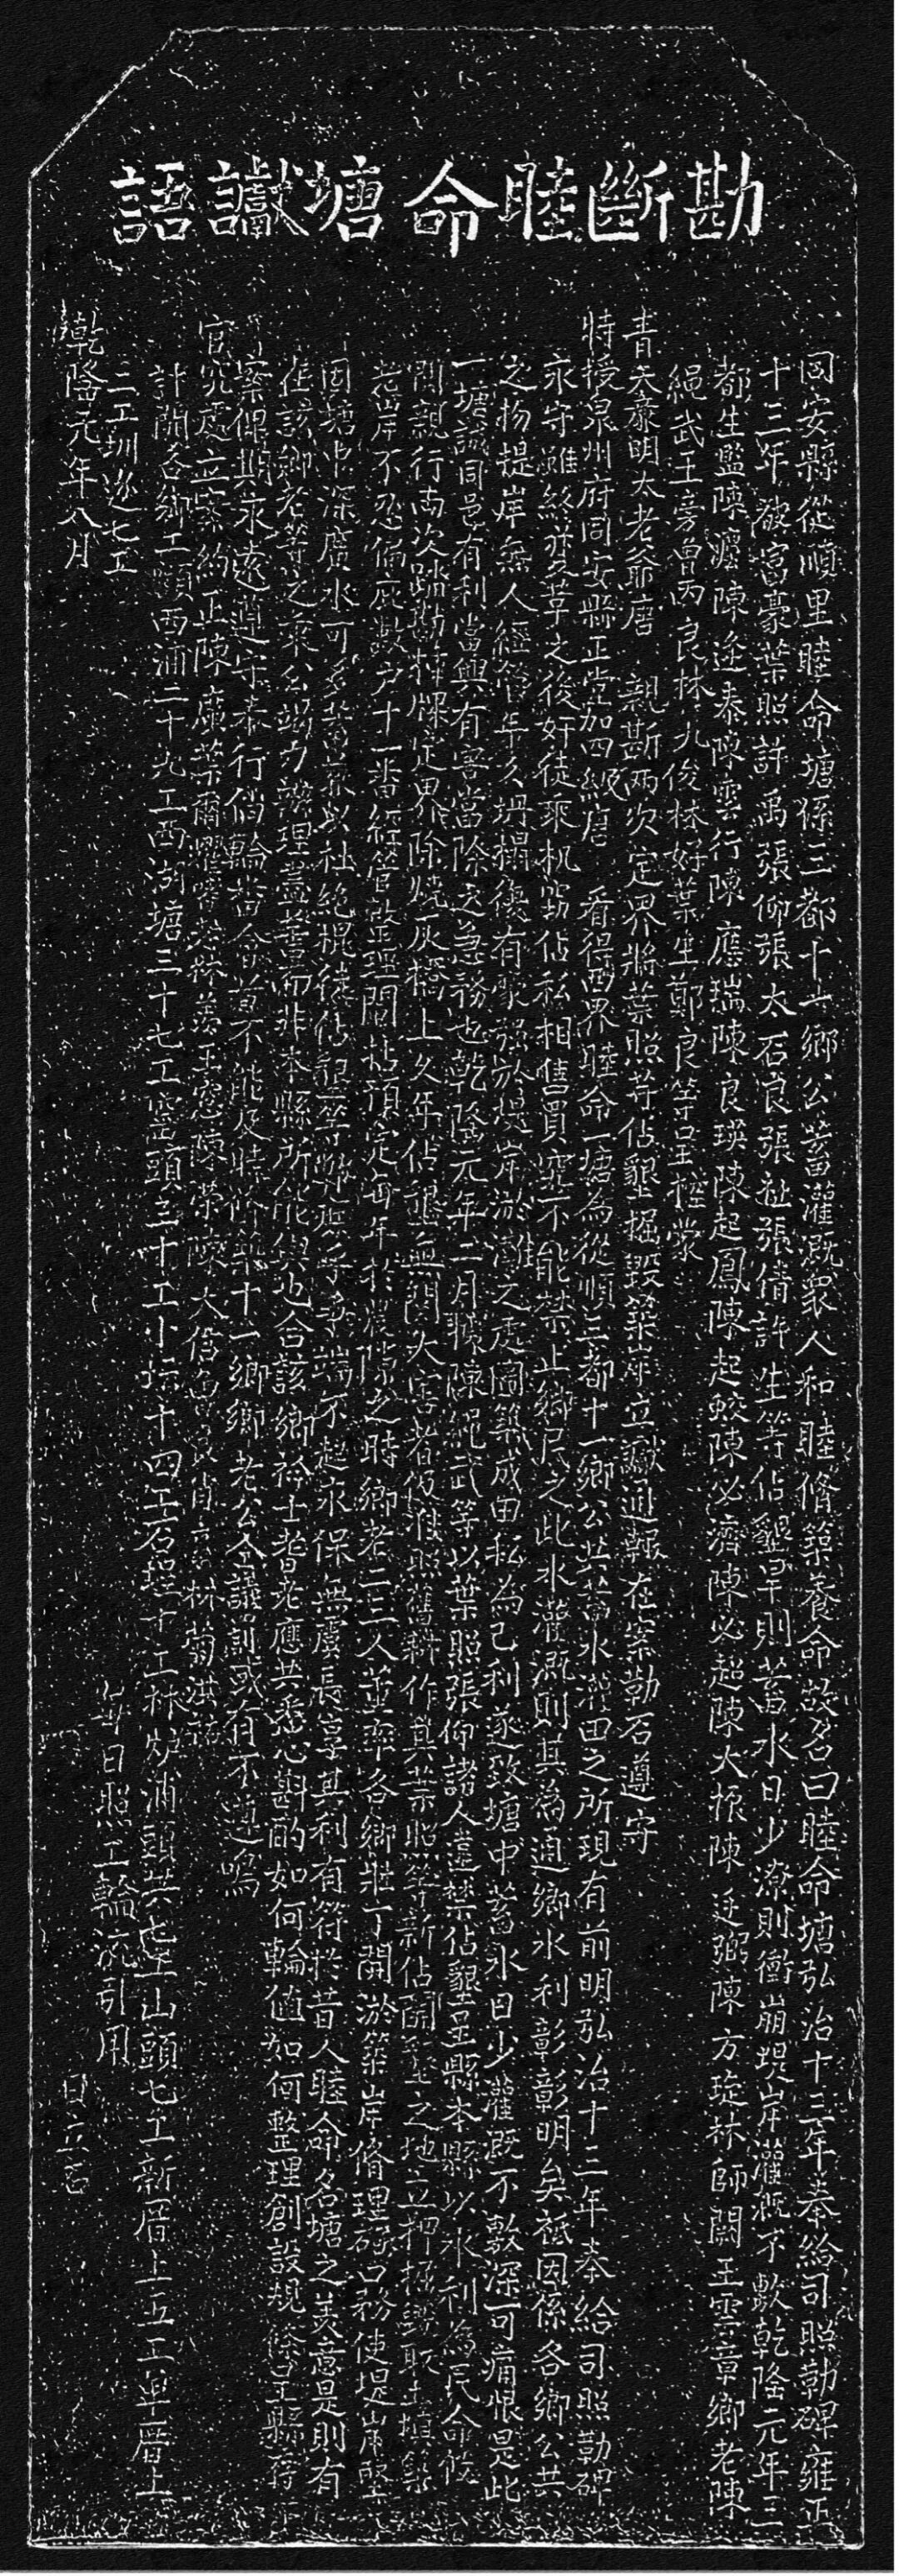 勘斷睦命塘讞語
同安縣從順里睦命塘係三都十一鄉公蓄灌溉眾人和睦脩築養命故名曰睦命塘弘治十三年奉給司照勒碑雍正
十三年被富豪葉照許禹張仰張太石良張祉張倩許生等佔墾旱則蓄水日少潦則衝崩堤岸灌溉不敷乾隆元年三
都生監陳 陳逢泰陳雲行陳應瑞陳良瑛陳起鳳陳起蛟陳必濟陳必超陳大振陳 廷弼陳方旋林師闕王雲章鄉老陳
繩武王 曾丙良林九俊林好葉生鄭良等呈控蒙
青天廉明太老爺唐 親斯兩次定界將葉照等佔墾掘毀築岸立讞通報在案勒石遵守
特授泉州府同安縣正堂加四級唐 看得 界睦命一塘為從順三都十一鄉公共蓄水灌田之所現有前明弘治十三年奉給司照勒碑
永守雖 之後奸徒乘机 佔私相售買究不能禁止鄉民之此水灌溉則其為通鄉水利彰彰明矣祗因係各鄉公共
之物堤岸無人經管年久坍塌復有豪強於堤岸淤 之處圖築成田私為己利遂致塘中蓄水日少灌溉不敷深可痛恨是此
一塘誠同邑有利當興有害當除之急務也乾隆元年二月據陳繩武等以葉照張仰諸人 禁佔墾呈縣本縣以水利為民命攸
關親行兩次踏勘 定界除燒灰橋上久年佔墾無關大害者仍准照舊耕作其葉照等新佔開墾之地立押掘毀取土填築
岸不忍偏 數戶十一 管 理 預定每年於農隙之時鄉老二三人並率各鄉壯丁開淤築岸脩理 口務使堤岸堅
固塘中深廣水可多蓄 以杜絕棍徒佔 等 爭端不起永保無虞長享其利有符於昔人睦命名塘之美意是則有
在該鄉老等之秉公竭力辦理盡善而非本縣所能與也合該鄉衿士耆老應共悉心斟酌如何輪值如何整理創設規條呈縣存
案俾期永遠遵守奉行倘輪 不能及時脩築十一鄉鄉老公全議罰或有不遵鳴
官究處立案約正陳 葉爾 林 王 陳榮陳大信 林菊
計開各鄉工顯西浦二十九工西湖塘三十七工 頭三十工卜 十四工石 十工林炉浦頭共七工山頭七工新厝上五工卓厝上
二工圳 七工 每日照工輪流引用
乾隆元年八月 日立石